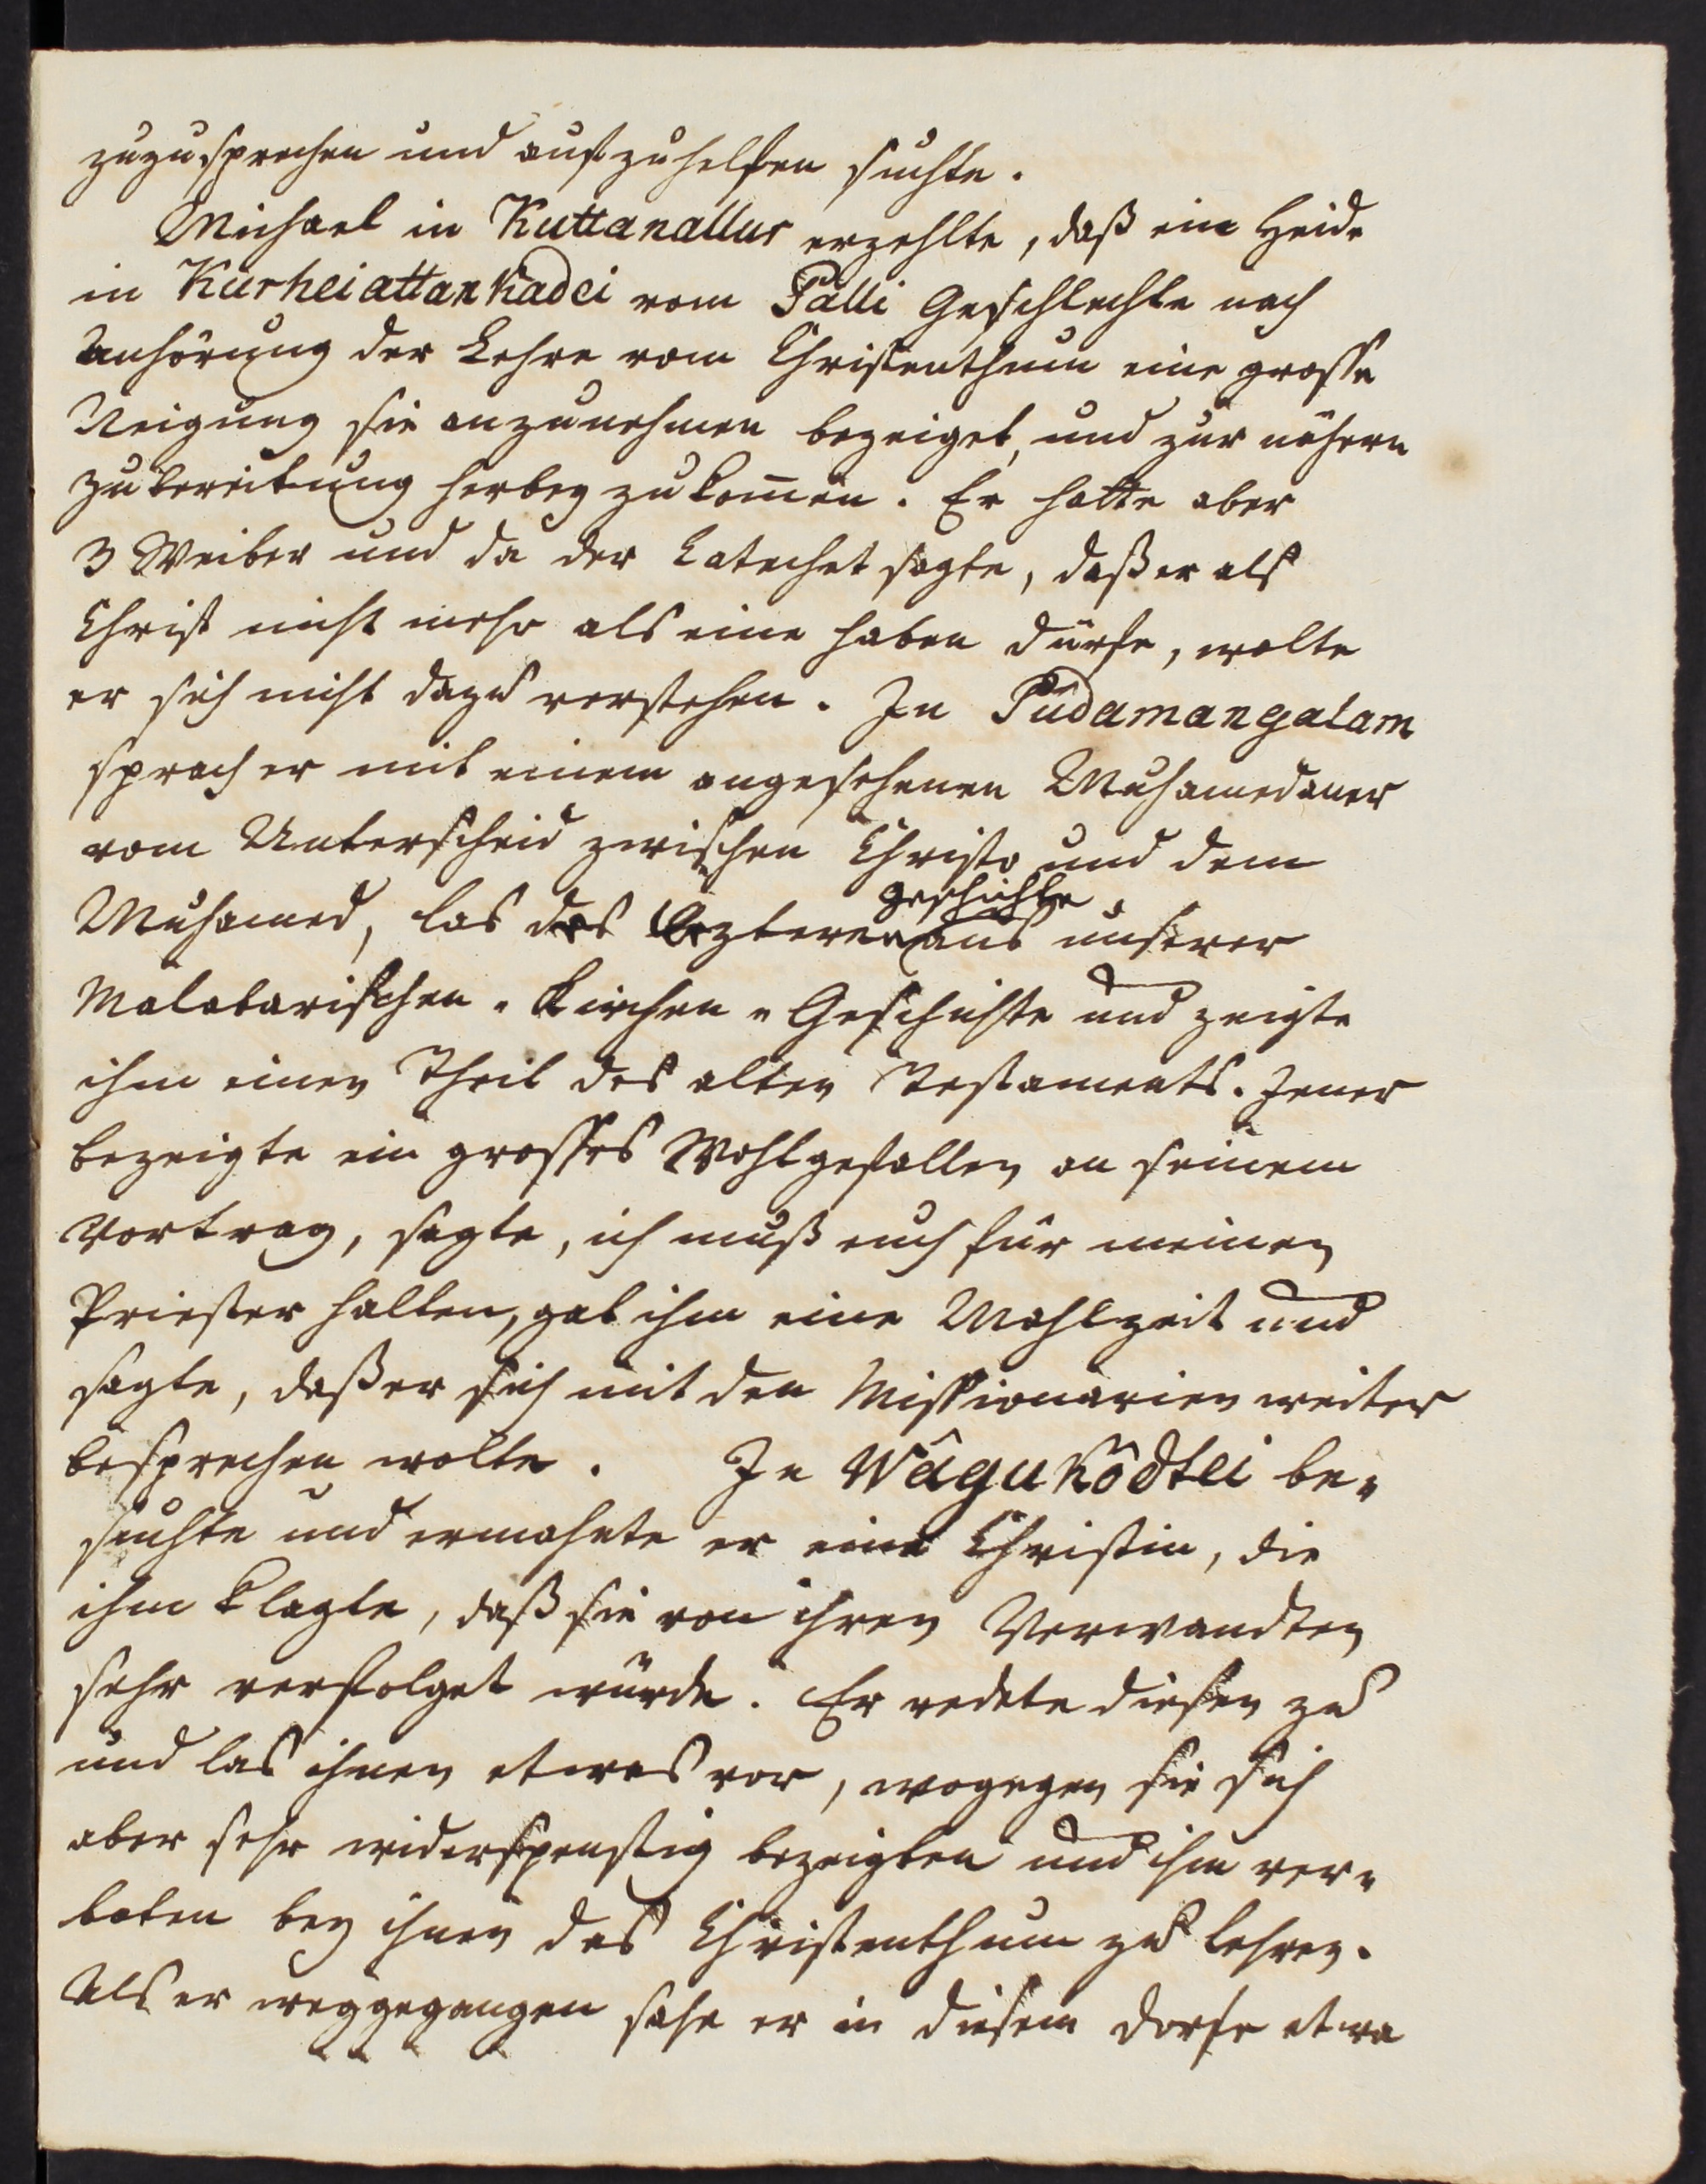 zuzusprechen und aufzuhelfen suchte.
Michael in Kuttanallur erzehlte, daß ein Heide
in Kurheiattankadei vom Palli Geschlechte nach
Anhörung der Lehre vom Christenthum eine grosse
Neigung sie anzunehmen bezeiget, und zur nähern
Zubereitung herbey zu kom̄en. Er hatte aber
3 Weiber und da der Catechet sagte, daß er als
Christ nicht mehr als eine haben dürfe, wolte
er sich nicht dazu verstehen. In Pudamangalam
sprach er mit einem angesehenen Muhamedaner
vom Unterscheid zwischen Christo und dem
Muhamed, las des leztern Geschichte aus unserer
Malabarischen Kirchen Geschichte und zeigte
ihm einen Theil des alten Testaments. Jener
bezeigte ein grosses Wohlgefallen an seinem
Vortrag, sagte, ich muß euch für meinen
Priester halten, gab ihm eine Mahlzeit und
sagte, daß er sich mit den Missionarien weiter
besprechen wolte. In Wâgukôdtei be-
suchte und ermahnte er eine Christin, die
ihm klagte, daß sie von ihren Verwandten
sehr verfolget würde. Er redete diesen zu
und las ihnen etwas vor, wogegen sie sich
aber sehr widerspenstig bezeigten und ihm ver-
boten bey ihnen das Christenthum zu lehren.
Als er weggegangen sahe er in diesem Dorfe etwa